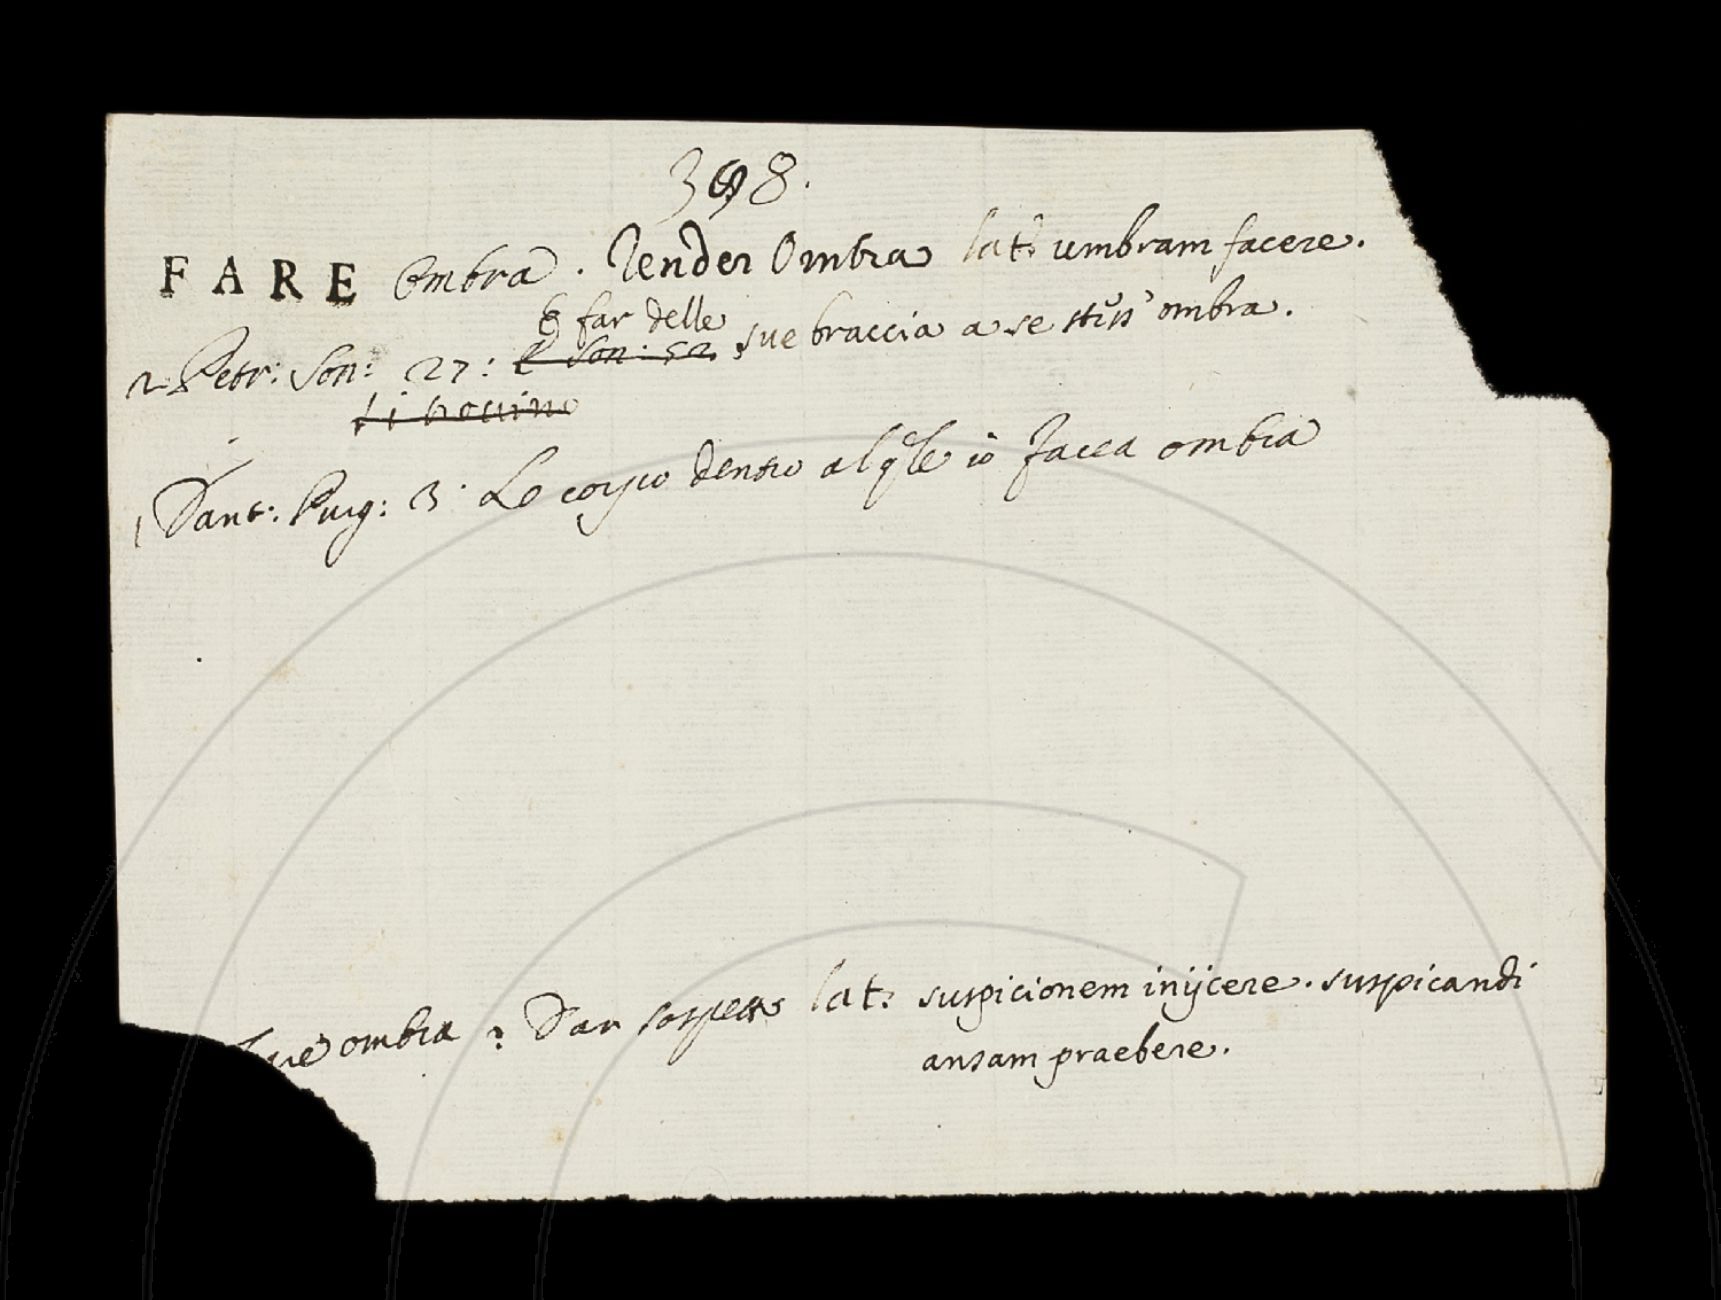 398.
FARE Ombra. Render Ombra lat: umbram facere.
E far delle
2. Petr: Son: 27: E Son: 52. sue braccia a se stess' ombra.
Dant: Purg: 3. Lo corpo dentro al qle io facea ombra
ombra : Dar sospetto lat: suspicionem inijcere. suspicandi
ansam praebere.